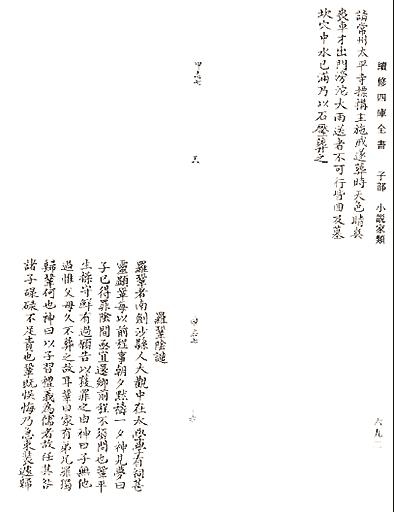 續修四庫全書 子部 小說家類
請常州太平寺標搆主施戒遂葬時天色晴爽
喪車才出門滂沱大雨送者不可行皆回及墓
坎穴中水已滿乃以石壓葬之
六九二
羅鞏陰譴
羅鞏者南劍沙縣人大觀中在太學學有祠甚
靈顯鞏每以前程事朝夕默禱一夕神見夢曰
子已得罪陰間亟宜還鄉前程不須問也鞏平
生操守鮮有過願告以獲罪之由神曰子無他
過惟父母久不葬之故耳鞏曰家有弟兄罪獨
歸鞏何也神曰以子習禮義為儒者故任其咎
諸子碌碌不足責也鞏既悞悔乃急束裝遽歸